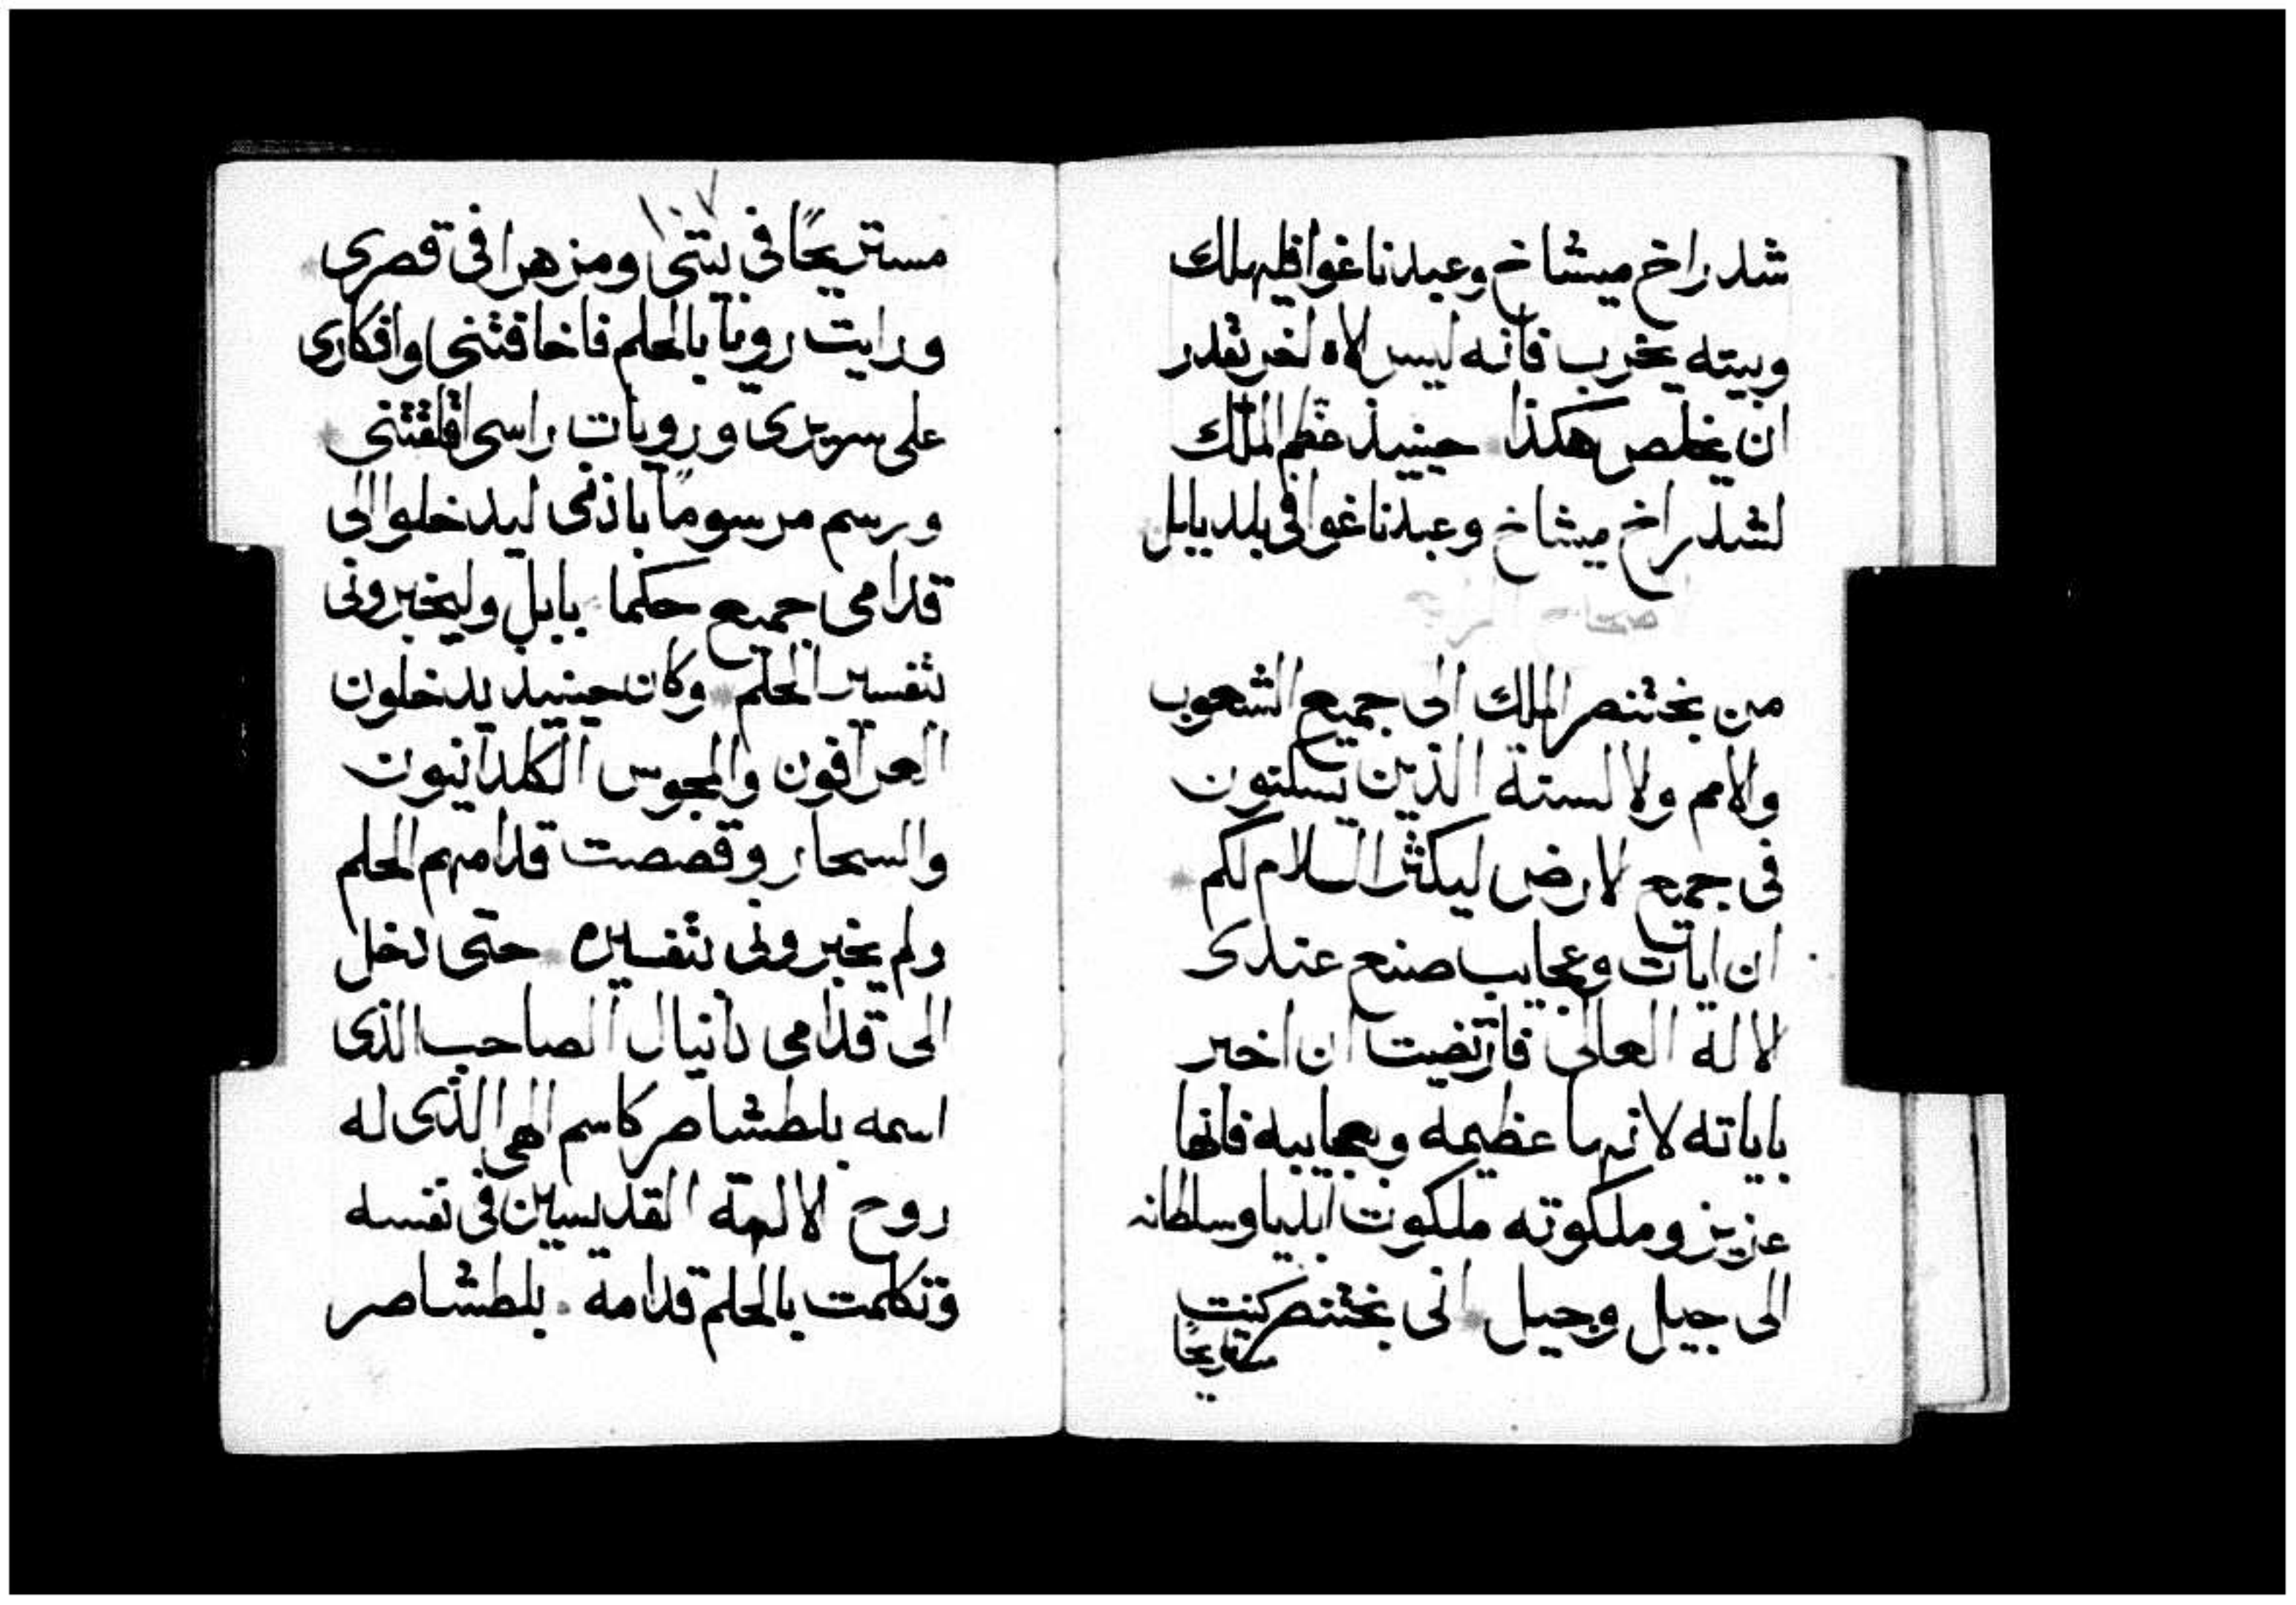 شدراخ ميشاخ وعبدناغوا فليهلك
وبيته يخرب فانه ليس لاه اخر يقدر
ان يخلص هكذا حينيذ عظم الملك
لشدراخ ميشاخ وعبدناغوا في بلد بابل
من بختنصر الملك الى جميع الشعوب
والامم ولالسنة الذين يسكنون
فى جميع لارض ليكثر السلام لكم
ان ايات وعجايب صنع عندى
لاله العالى فارتضيت ان اخبر
باياته لانها عظيمه وبعجايبه فانها
عزيز وملكوته ملكوت ابديا وسلطانه
الى جيل وجيل انى بختنصر كنت
مستريحًا
١٠٧
مستريحًا في بيتى ومزهرا فى قصرى
ورايت رويا بالحلم فاخافتنى وافكارى
على سريرى ورويات راسى اقلقتنى
ورسم مرسومًا باذنى ليدخلوا الى
قدامى جميع حكما بابل وليخبرونى
بتفسير الحلم وكان حينيذ يدخلون
العرافون والمجوس الكلدانيون
والسحار وقصصت قدامهم الحلم
ولم يخبرونى بتفسيره حتى دخل
الى قدامى دانيال الصاحب الذى
اسمه بلطشاصر كاسم الهى الذى له
روح لالهة القديسين فى نفسه
وتكلمت بالحلم قدامه بلطشاصر